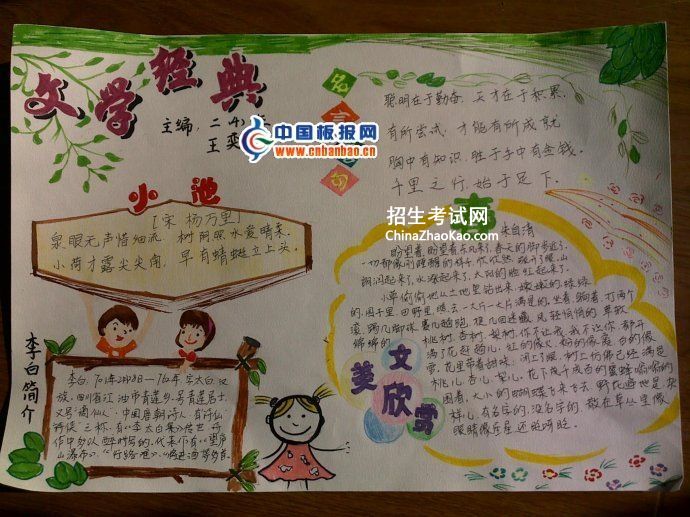 文学经典
主编：二(4)
王奕
中国板报网
www.cnbanbao.cn
名言
句
聪明在于勤奋，天才在于积累。
有所尝试，才能有所成就
胸中有知识，胜于手中有金钱。
千里之行，始于足下。
招生考试网
ChinaZhaoKao.com
小池
[宋 杨万里]
泉眼无声惜细流，树阴照水爱晴柔。
小荷才露尖尖角，早有蜻蜓立上头。
李白简介
李白，701年2月28日—762年，字太白，汉
族，四川省江油市青莲乡，号青莲居士，
又号"谪仙人"，中国唐朝诗人，有"诗仙"
作中多以醉时写的，代表作有《望庐
山瀑布》、《行路难》、《将进酒》等多首。
春
朱自清
盼望着，盼望着，东风来了，春天的脚步近了。
一切都像刚睡醒的样子，欣欣然张开了眼。山
朗润起来了，水涨起来了，太阳的脸红起来了。
小草偷偷地从土地里钻出来，嫩嫩的，绿绿
的。园子里，田野里，瞧去，一大片一大片满是的。坐着，躺着，打两个
滚，踢几脚球，赛几趟跑，捉几回迷藏。风轻悄悄的，草软
绵绵的。
桃树、杏树、梨树，你不让我，我不让你，都开
满了花赶趟儿。红的像火，粉的像霞，白的像
雪。花里带着甜味；闭了眼，树上仿佛已经满是
桃儿、杏儿、梨儿。花下成千成百的蜜蜂嗡嗡的
闹着，大小的蝴蝶飞来飞去。野花遍地是：杂
样儿，有名字的，没名字的，散在草丛里像
眼睛，像星星，还眨呀眨。
美文
欣赏